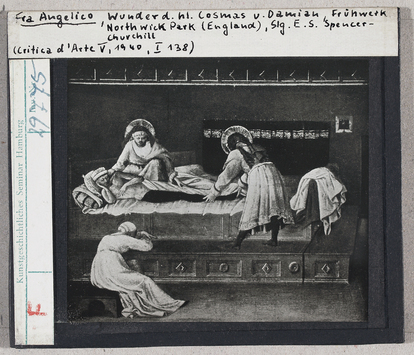 Fra Angelico, Wunder d. hl. Cosmas u. Damian, Frühwerk
Northwick Park (England), Slg. E. S. Spencer-
Churchill
(Critica d'Arte V, 1940, I 138)
Kunstgeschichtliches Seminar Hamburg